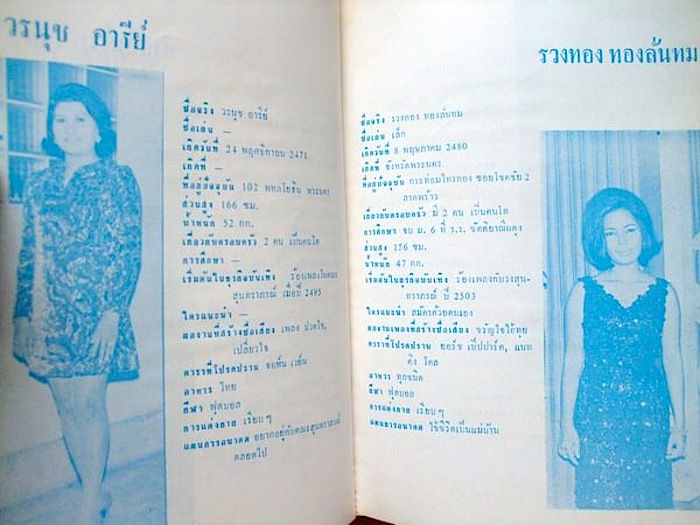 วรนุช อารีย์
ชื่อจริง วรนุช อารีย์
ชื่อเล่น —
เกิดวันที่ 24 พฤศจิกายน 2471
เกิดที่ —
ที่อยู่ปัจจุบัน 102 พหลโยธิน พระนคร
ส่วนสูง 166 ซม.
น้ำหนัก 52 กก.
เกี่ยวกับครอบครัว 2 คน เป็นคนโต
การศึกษา —
เริ่มต้นในธุรกิจบันเทิง ร้องเพลงในคณะ
สุนทราภรณ์ เมื่อปี 2495
ใครแนะนำ —
ผลงานที่สร้างชื่อเสียง เพลง ปวดใจ,
เปลี่ยวใจ
ดาราที่โปรดปราน จอห์น เวย์น
อาหาร ไทย
กีฬา ฟุตบอล
การแต่งกาย เรียบๆ
แผนการอนาคต อยากอยู่กับคณะสุนทราภรณ์
ตลอดไป
รวงทอง ทองลั่นทม
ชื่อจริง รวงทอง ทองลั่นทม
ชื่อเล่น เล็ก
เกิดวันที่ 8 พฤษภาคม 2480
เกิดที่ จังหวัดพระนคร
ที่อยู่ปัจจุบัน กระท่อมไพรทอง ซอยโชคชัย 2
ลาดพร้าว
เกี่ยวกับครอบครัว มี 2 คน เป็นคนโต
การศึกษา จบ ม. 6 ที่ ร.ร. ขัตติยาณีผดุง
ส่วนสูง 156 ซม.
น้ำหนัก 47 กก.
เริ่มต้นในธุรกิจบันเทิง ร้องเพลงกับวงสุน-
ทราภรณ์ ปี 2503
ใครแนะนำ สมัครด้วยตนเอง
ผลงานเพลงที่สร้างชื่อเสียง ขวัญใจเจ้าทุย
ดาราที่โปรดปราน ยอร์ช เป็ปปาร์ด, แนท
คิง โคล
อาหาร ทุกชนิด
กีฬา ฟุตบอล
การแต่งกาย เรียบๆ
แผนการอนาคต ใช้ชีวิตเป็นแม่บ้าน